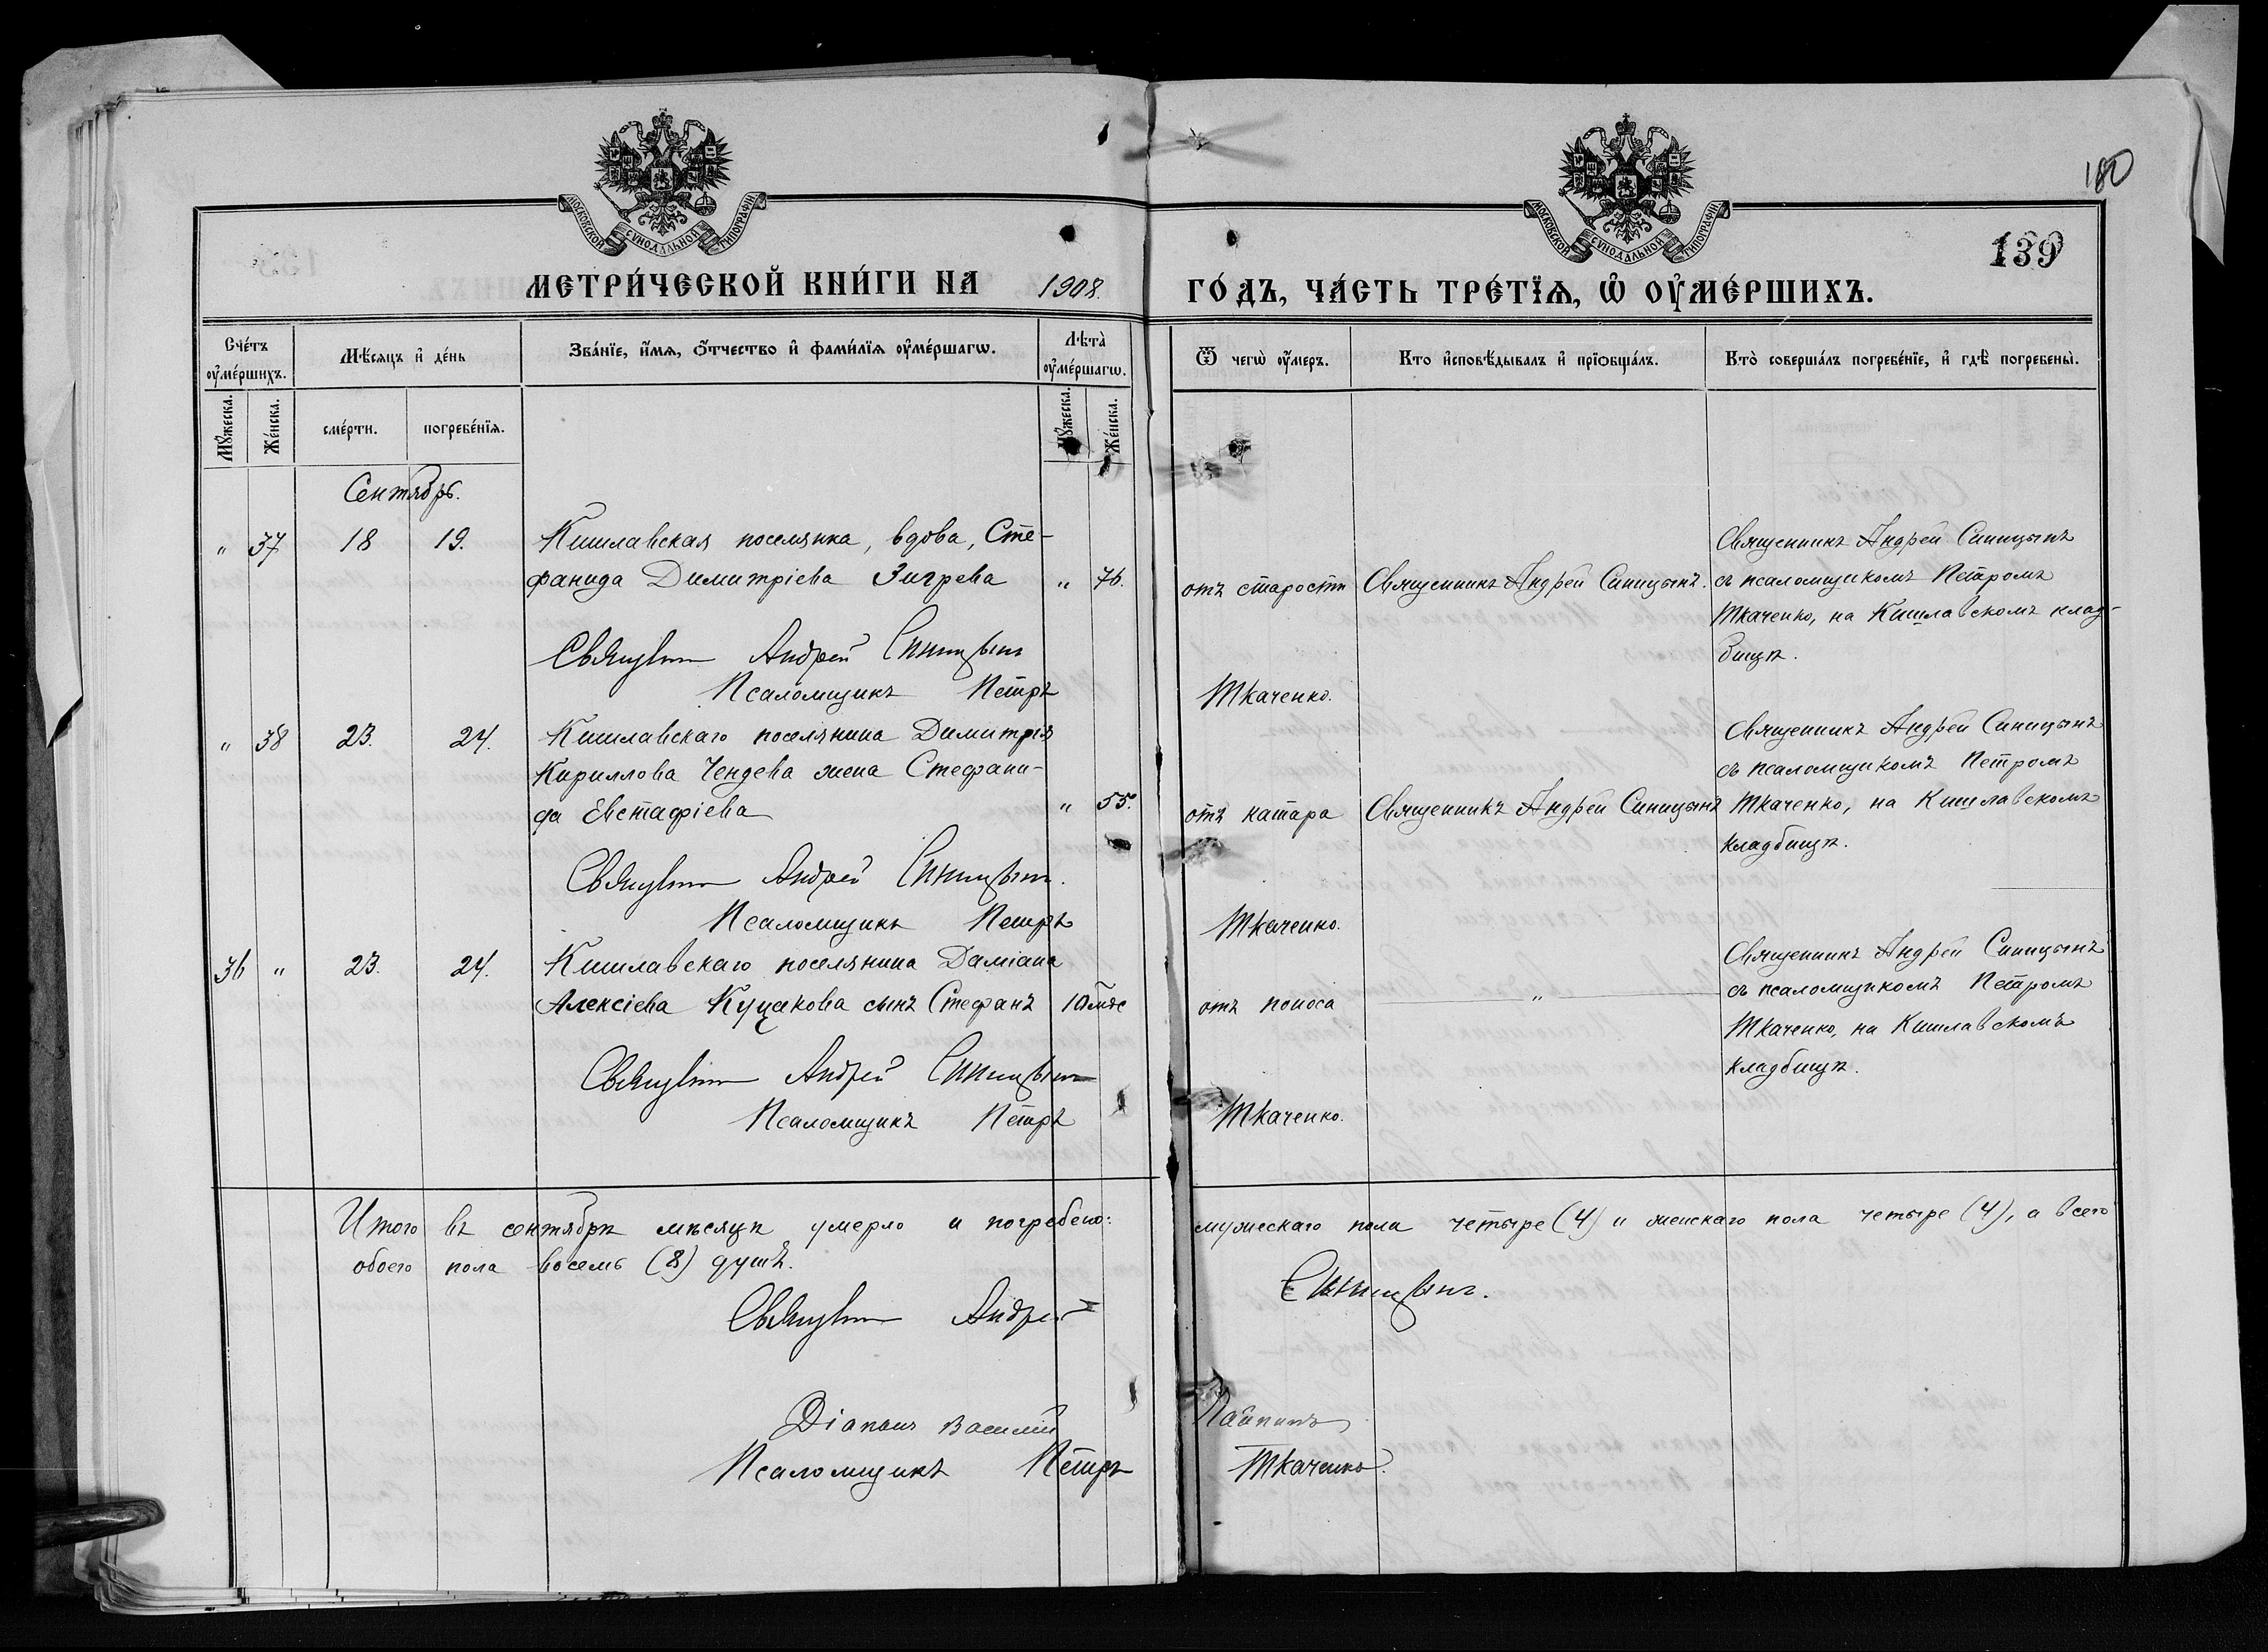 180
139
МОСКОВСКОЙ СѴНОДАЛЬНОЙ ТИПОГРАФІИ
МОСКОВСКОЙ СѴНОДАЛЬНОЙ ТИПОГРАФІИ
МЕТРИ́ЧЕСКОЙ КНИ́ГИ НА 1908. ГО́ДЪ, ЧА́СТЬ ТРЕ́ТЇѦ, Ѡ҆ ОУ҆МЕ́РШИХЪ.
Сче́тъ оу҆ме́ршихъ.
Мѣ́сяцъ и҆ де́нь
Зва́нїе, и҆́мѧ, ѻ҆́тчество и҆ фами́лїѧ оу҆ме́ршагѡ.
Лѣта̀ оу҆ме́ршагѡ.
Ѿ чегѡ̀ оу҆́меръ.
Кто и҆сповѣ́дывалъ и҆ прїѻбща́лъ.
Кто̀ соверша́лъ погребе́нїе, и҆ гдѣ̀ погребены̀.
Мꙋ́жеска. Же́нска. сме́рти. погребе́нїѧ. Мꙋ́жеска. Же́нска.
Сентябрь.
„ 37 18 19. Кишлавская поселянка, вдова, Сте-
фанида Димитріева Зигрева „ 76. отъ старости Священникъ Андрей Синицынъ.
Священникъ Андрей Синицынъ
съ псаломщикомъ Петромъ
Ткаченко, на Кишлавскомъ клад-
бищѣ.
Священникъ Андрей Синицынъ
Псаломщикъ Петръ Ткаченко.
„ 38 23. 24. Кишлавскаго поселянина Димитрія
Кириллова Чендева жена Стефани-
да Евстафіева „ 55. отъ катара Священникъ Андрей Синицынъ
Священникъ Андрей Синицынъ
съ псаломщикомъ Петромъ
Ткаченко, на Кишлавскомъ
кладбищѣ.
Священникъ Андрей Синицынъ.
Псаломщикъ Петръ Ткаченко.
36 „ 23. 24. Кишлавскаго поселянина Даміана
Алексіева Куцакова сынъ Стефанъ 10 мѣс отъ поноса „
Священникъ Андрей Синицынъ
съ псаломщикомъ Петромъ
Ткаченко, на Кишлавскомъ
кладбищѣ.
Священникъ Андрей Синицынъ
Псаломщикъ Петръ Ткаченко.
Итого въ сентябрѣ мѣсяцѣ умерло и погребено: мужескаго пола четыре (4) и женскаго пола четыре (4), а всего
обоего пола восемь (8) душъ.
Священникъ Андрей Синицынъ.
Діаконъ Василій
Псаломщикъ Петръ Ткаченко.